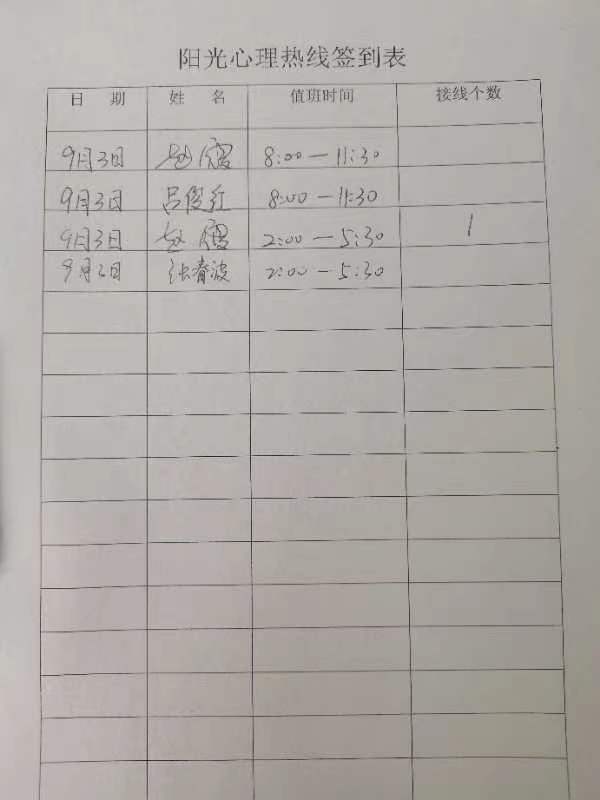 阳光心理热线签到表
日 期 姓 名 值班时间 接线个数
9月3日 赵 8:00—11:30
9月3日 吕俊红 8:00—11:30
9月3日 赵 2:00—5:30 1
9月3日 张春波 2:00—5:30